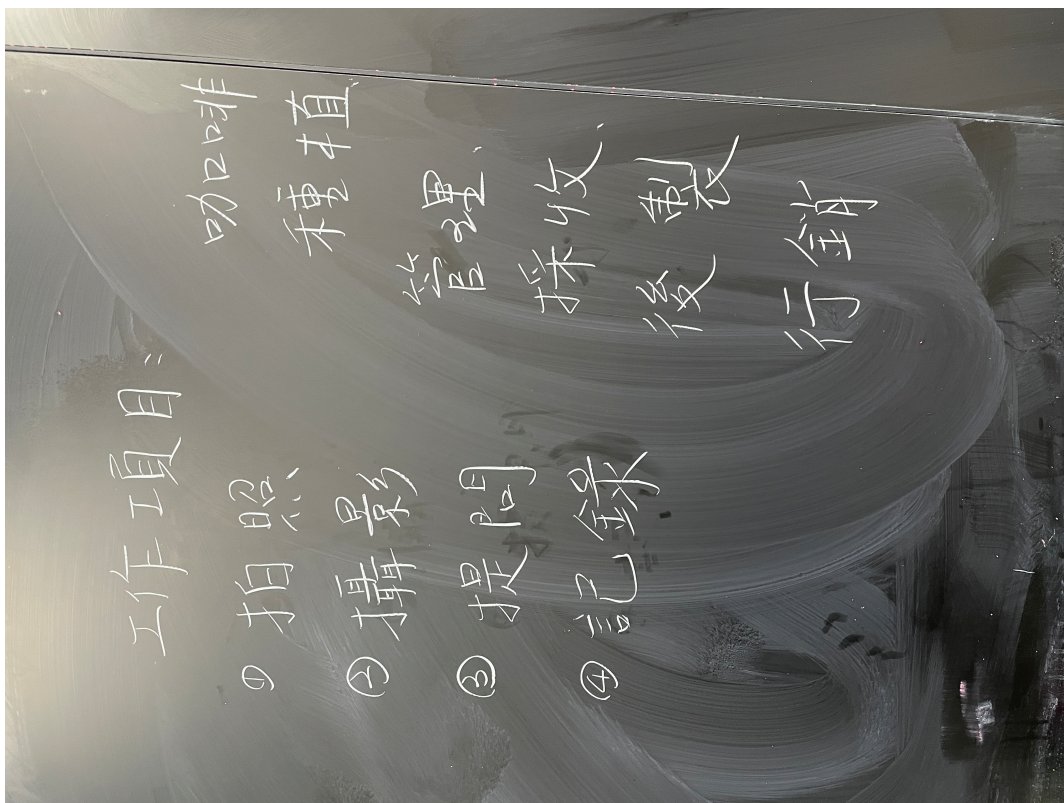 工作項目：
① 拍照、
② 攝影
③ 提問
④ 記錄
咖啡
種植、
管理、
採收、
後製
行銷